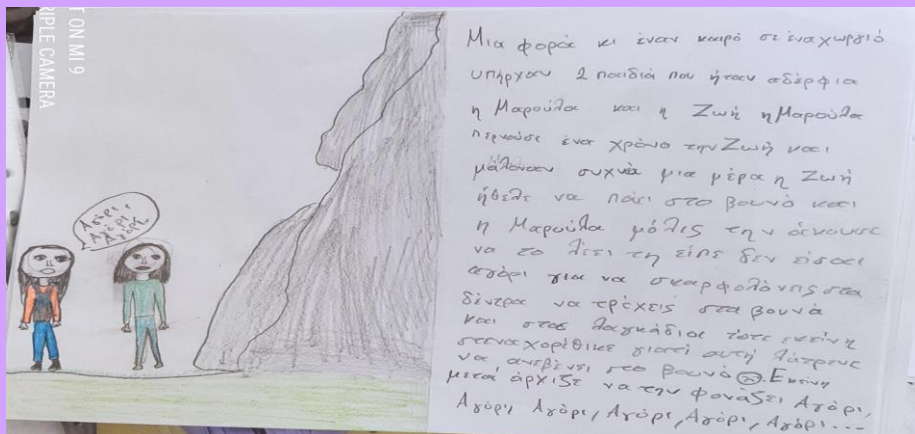 T ON MI 9
RIPLE CAMERA
Αγόρι,
Αγόρι
Αγόρι
Μια φορά κι έναν καιρό σε ένα χωργιό
υπήρχαν 2 παιδιά που ήταν αδέρφια
η Μαρούλα και η Ζωή η Μαρούλα
περνούσε ένα χρόνο την Ζωή και
μάλοναν συχνά μια μέρα η Ζωή
ήθελε να πάει στο βουνό και
η Μαρούλα μόλις την άκουσε
να το λέει τη είπε δεν είσαι
αγόρι για να σκαρφολόνης στα
δέντρα να τρέχεις στα βουνά
και στα λαγκάδια τότε εκείνη
στεναχορέθικε γιατί αυτή λάτρευε
να ανεβένει στο βουνό. Εκείνη
μετά άρχιζε να την φονάξει Αγόρι,
Αγόρι, Αγόρι, Αγόρι, Αγόρι, Αγόρι...